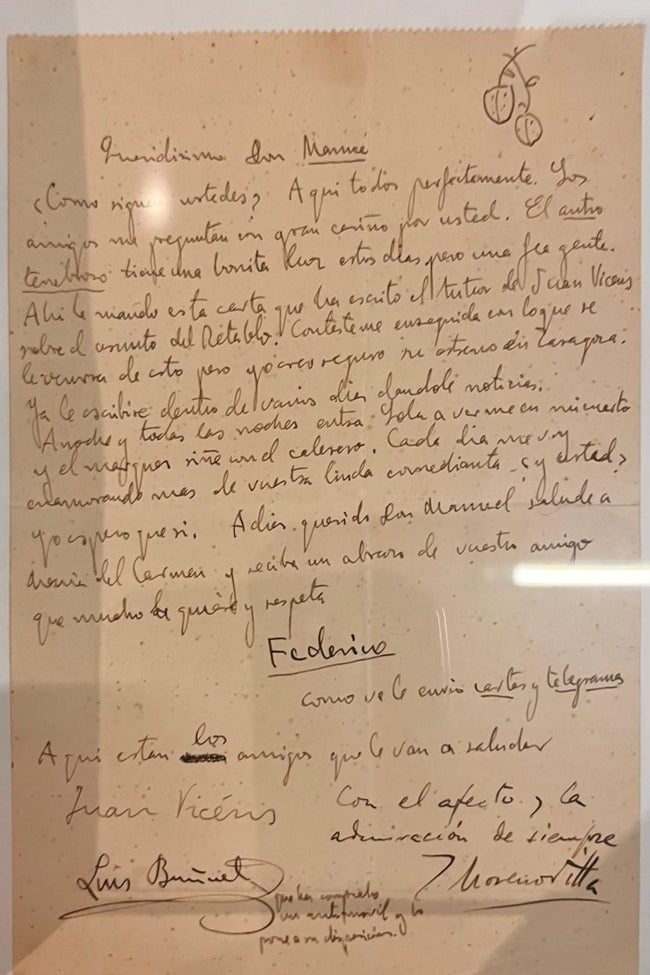 Queridisimo Don Manué
¿Como siguen ustedes? Aqui todos perfectamente. Los
amigos me preguntan con gran cariño por usted. El antro
tenebroso tiene una bonita luz estos dias pero una fea gente.
Ahi le mando esta carta que ha escrito el tutor de Juan Vicens
sobre el asunto del Retablo. Contesteme enseguida con loque se
de esto pero yo creo seguro su estreno en Zaragoza.
Ya le escribire dentro de varios dias dandole noticias.
Anoche y todas las noches entra Lola a verme en mi cuarto
y el marques riñe con el calesero. Cada dia me voy
enamorando mas de vuestra linda comedianta ¿y usted?
yo espero que si. Adios querido Don Manuel salude a
Maria del Carmen y reciba un abrazo de vuestro amigo
que mucho le quiere y respeta
Federico
como ve le envio cartas y telegramas
Aqui estan los amigos que le van a saludar
Juan Vicéns
Con el afecto y la
admiración de siempre
J. Moreno Villa
Luis Buñuel
que ha comprado
un automóvil y lo
pone a su disposición.